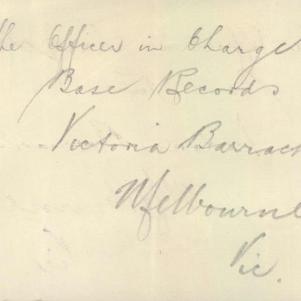 the Officer in Charge
Base Records
Victoria Barrac
Melbourne
Vic.